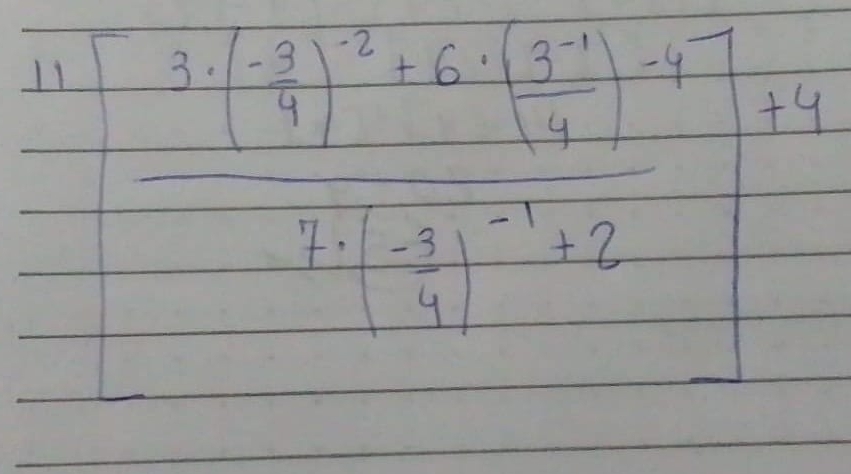 11 [ 3 · (-3/4)^-2 + 6 · (3^-1/4) - 4 ] + 4
7 · (-3/4)^-1 + 2